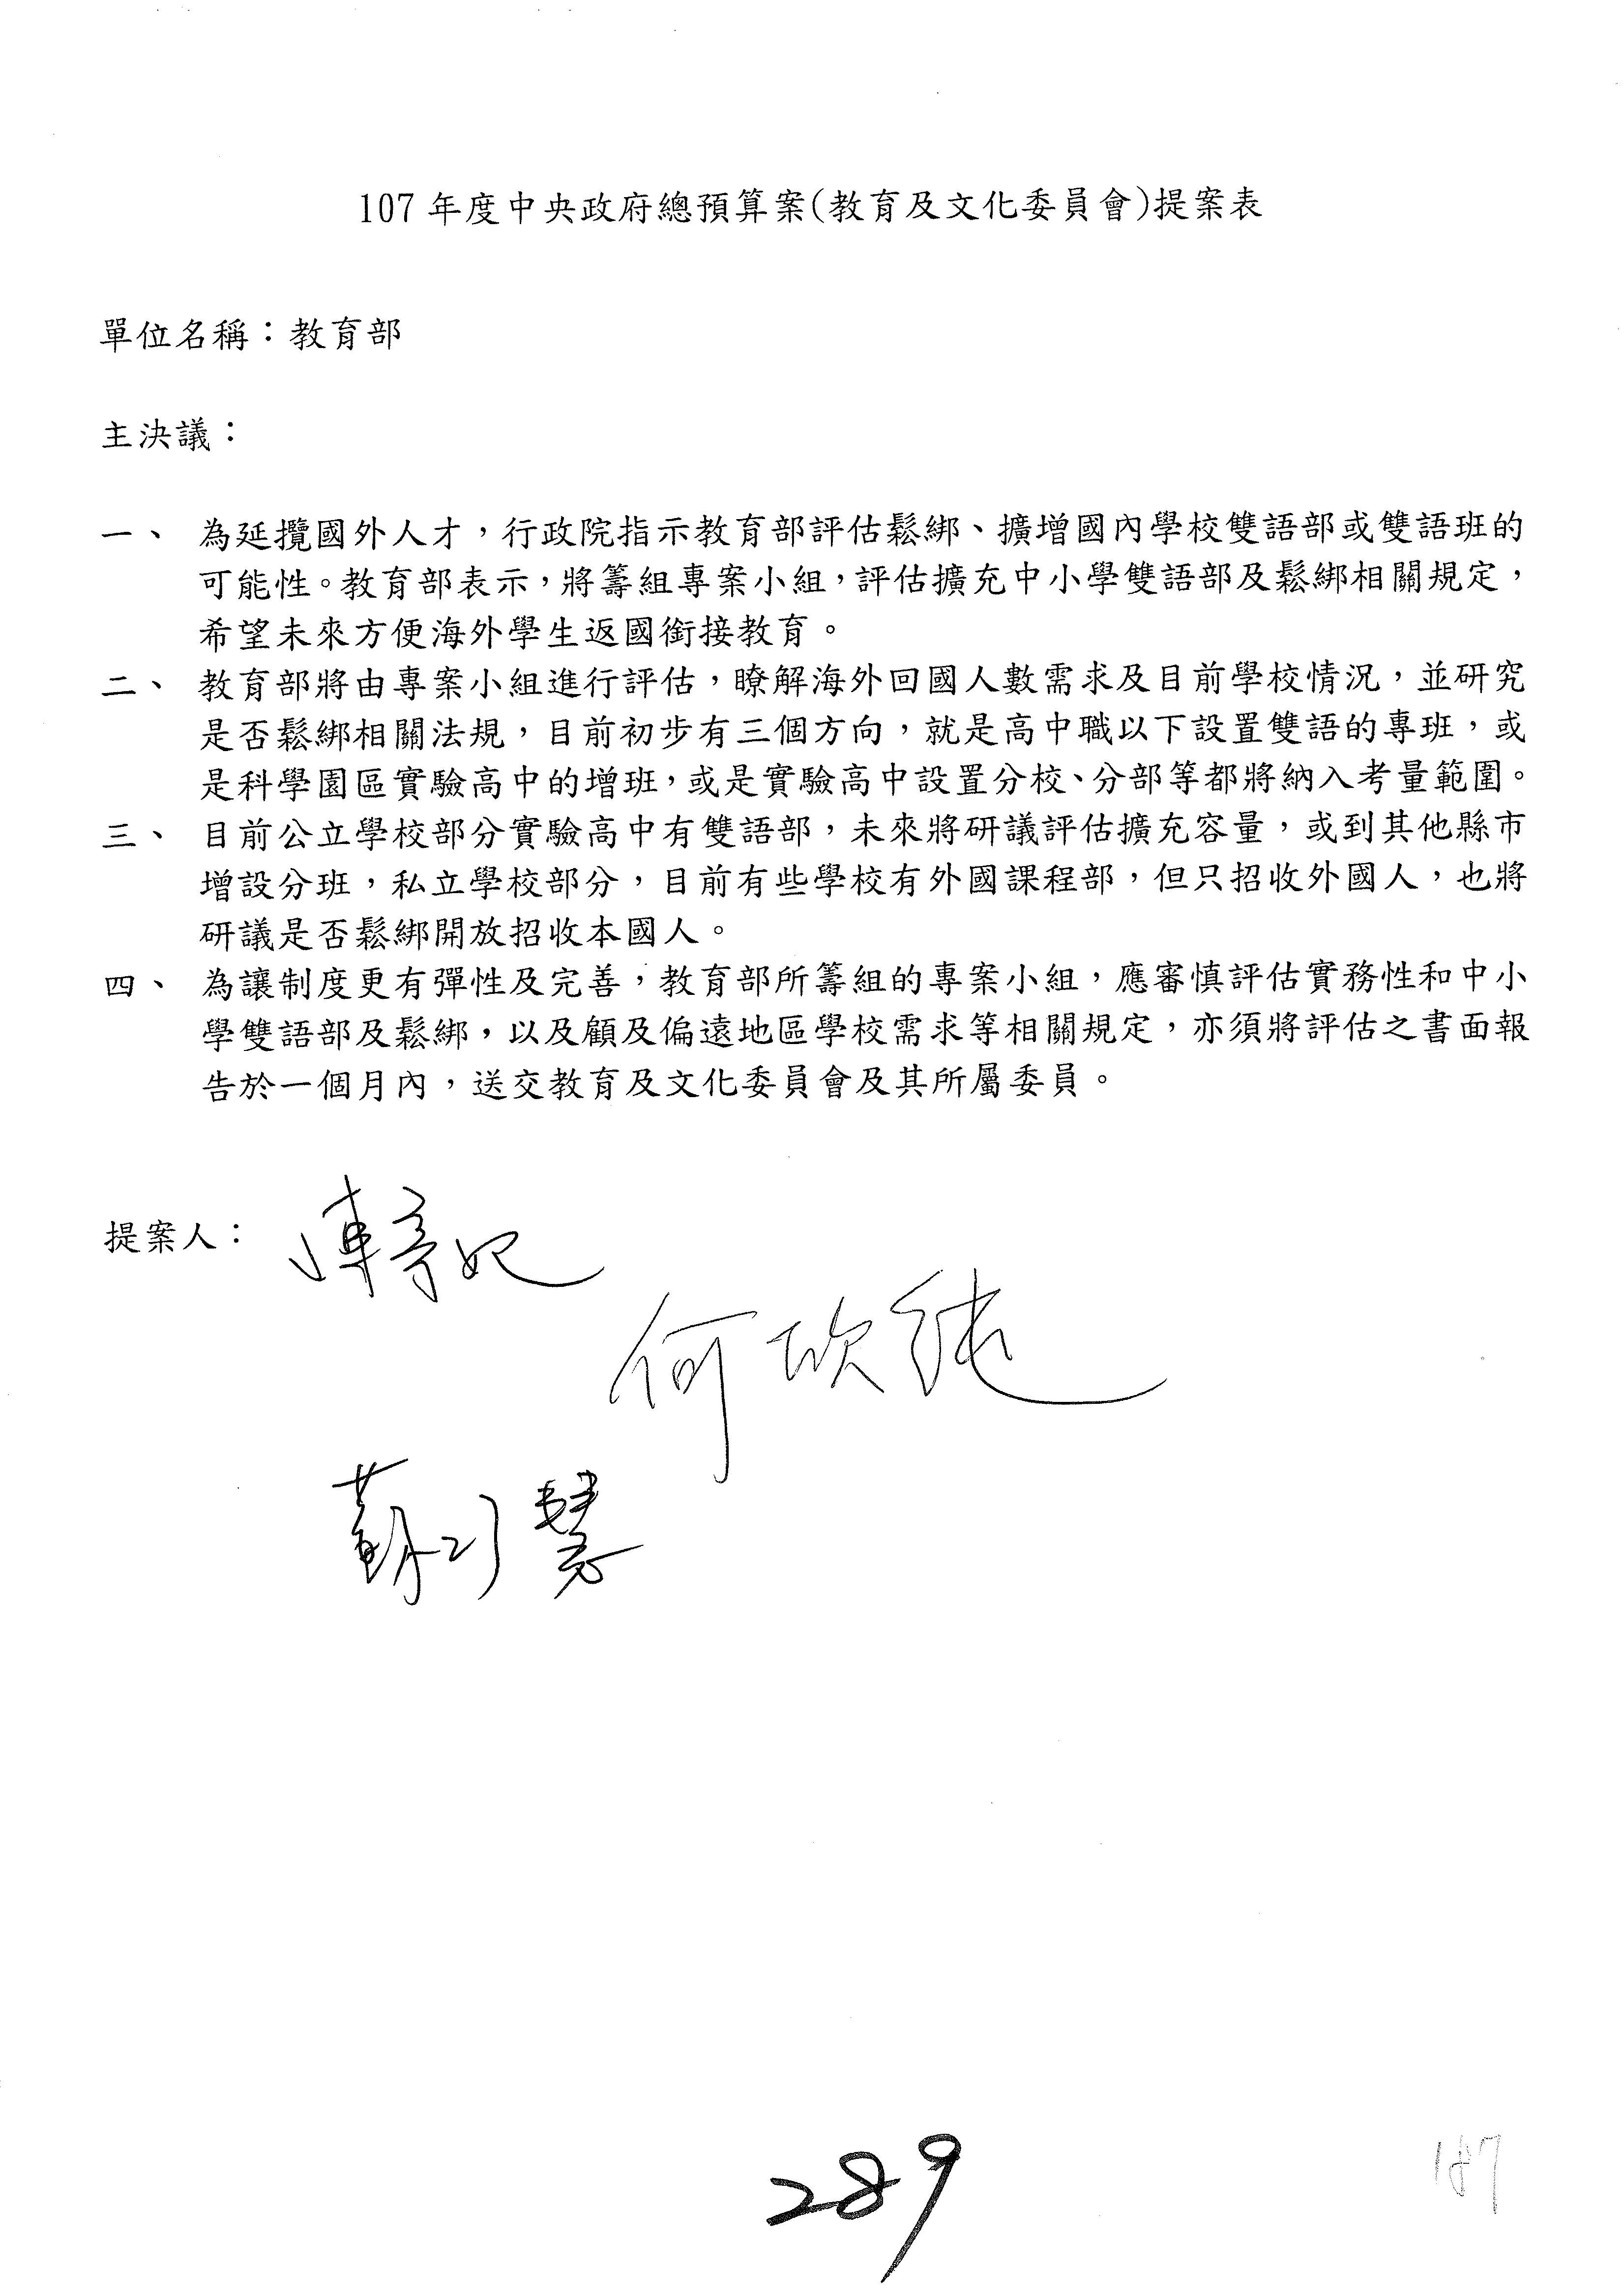 107 年度中央政府總預算案(教育及文化委員會)提案表
單位名稱：教育部
主決議：
一、 為延攬國外人才，行政院指示教育部評估鬆綁、擴增國內學校雙語部或雙語班的
可能性。教育部表示，將籌組專案小組，評估擴充中小學雙語部及鬆綁相關規定，
希望未來方便海外學生返國銜接教育。
二、 教育部將由專案小組進行評估，瞭解海外回國人數需求及目前學校情況，並研究
是否鬆綁相關法規，目前初步有三個方向，就是高中職以下設置雙語的專班，或
是科學園區實驗高中的增班，或是實驗高中設置分校、分部等都將納入考量範圍。
三、 目前公立學校部分實驗高中有雙語部，未來將研議評估擴充容量，或到其他縣市
增設分班，私立學校部分，目前有些學校有外國課程部，但只招收外國人，也將
研議是否鬆綁開放招收本國人。
四、 為讓制度更有彈性及完善，教育部所籌組的專案小組，應審慎評估實務性和中小
學雙語部及鬆綁，以及顧及偏遠地區學校需求等相關規定，亦須將評估之書面報
告於一個月內，送交教育及文化委員會及其所屬委員。
提案人：
何欣純
蘇巧慧
289